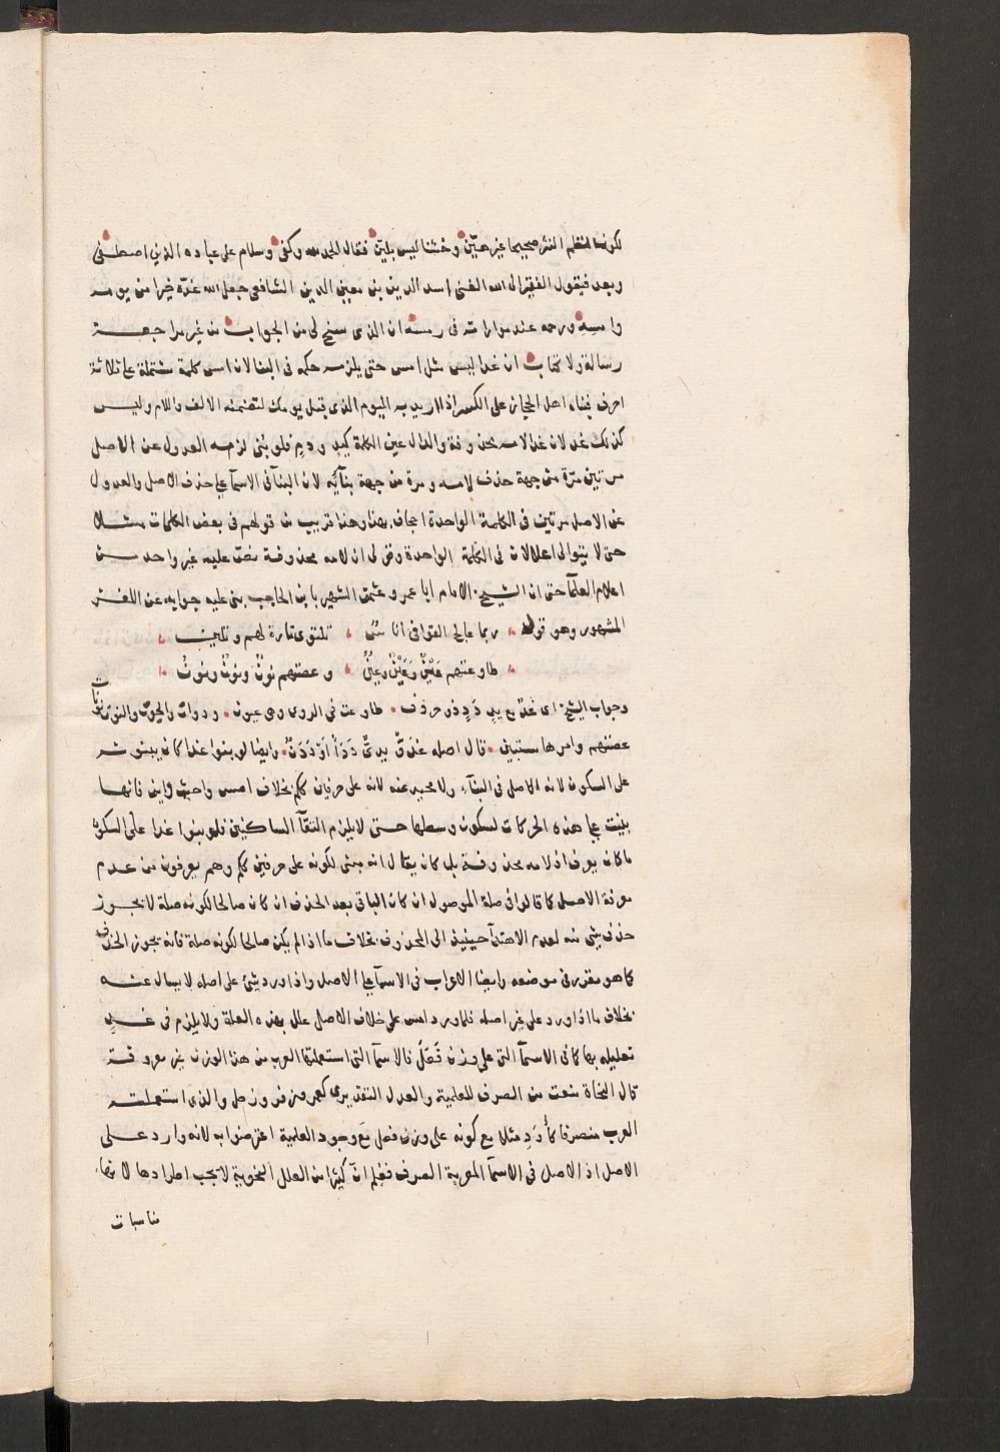 لكونها لنظم النثر صحيحا غير هيّن وخشنا ليس بليّن فقال الحمد لله وكفى وسلام على عباده الذين اصطفى
وبعد فيقول الفقير الى الله الغنى اسد الدين بن معين الدين الشافعى جعل الله غده خيرا من يومه
وامسه ورحمه عند مواراته فى رمسه ان الذى سنح لى من الجواب من غير مراجعة
رسالة ولا كتاب ان غدا ليس مثل امس حتى يلزمه حكمه فى البنا لان امس كلمة مشتملة على ثلاثة
احرف بناه اهل الحجاز على الكسر اذا اريد به اليوم الذى قبل يومك لتضمنه الالف واللام وليس
كذلك غد لان غدا لامه محذوفة والدال عين الكلمة كيد ودم فلو بنى لزمه العدول عن الاصل
مرتين مرّة من جهة حذف لامه ومرة من جهة بنآئه لان البنآ فى الاسمآ على خلاف الاصل والعدول
عن الاصل مرتين فى الكلمة الواحدة اجحاف بها وهذا قريب من قولهم فى بعض الكلمات مثلا
حتى لا يتوالى اعلالان فى الكلمة الواحدة وقولى ان لامه محذوفة نصّ عليه غير واحد من
اعلام العلمآ حتى ان الشيخ الامام ابا عمرو عثمن الشهير بابن الحاجب بنى عليه جوابه عن اللغز
المشهور وهو قوله ربما عالج القوافى اناس تلتوى تارة لهم وتلين
طاوعتهم عَيْنٌ وعَيْنٌ وعَيْنٌ وعصتهم نونٌ ونونٌ ونونُ
وجواب الشيخ اى غدٌ مع يدٍ دَدٍ ذو حرذف طاوعت فى الروى وهى عيون ودواة والحوت والنون نونات
عصتهم وامرها مستبين قال اصله غدوٌ يدىٌ دَدَاٌ اوْ دَدَنٌ وايضا لو بنوا غدا كان يبنونه
على السكون لانه الاصل فى البنآء ولا محيد عنه لانه على حرفين ككم بخلاف امس وحيث واين فانها
بنيت على هذه الحركات لسكون وسطها حتى لا يلزم التقآ الساكنين فلو بنوا غدا على السكون
ما كان يعرف ان لامه محذوفة بل كان يقال انه مبنى لكونه على حرفين ككم وهم يعرفون من عدم
معرفة الاصل كما قالوا فى صلة الموصول ان كان الباقى بعد الحذف ان كان صالحا لكونه صلة لا يجوز
حذف شئ منه لعدم الاهتدآ حينئذ الى المحذوف بخلاف ما اذا لم يكن صالحا لكونه صلة فانه يجوز الحذف
كما هو مقرر فى موضعه وايضا الاعراب فى الاسمآ على الاصل واذا ورد شئ على اصله لا يسال عنه
بخلاف ما اذا ورد على غير اصله فلما ورد امس على خلاف الاصل علل بهذه العلة ولا يلزم فى غيره
تعليله بها كما فى الاسمآ التى على وزن فُعَلَ فالاسمآ التى استعملتها العرب من هذا الوزن غير معروفة
قال النحاة منعت من الصرف للعلمية والعدل التقديرى كعمر وزفر وزحل والذى استعملته
العرب منصرفا كأُدَدٍ مثلا مع كونه على وزن فعل مع وجود العلمية اعترضوا به لانه وارد على
الاصل اذ الاصل فى الاسمآ المعربة الصرف فعلم انّ كثيرا من العلل النحوية لا يجب اطرادها لا نها
مناسبات